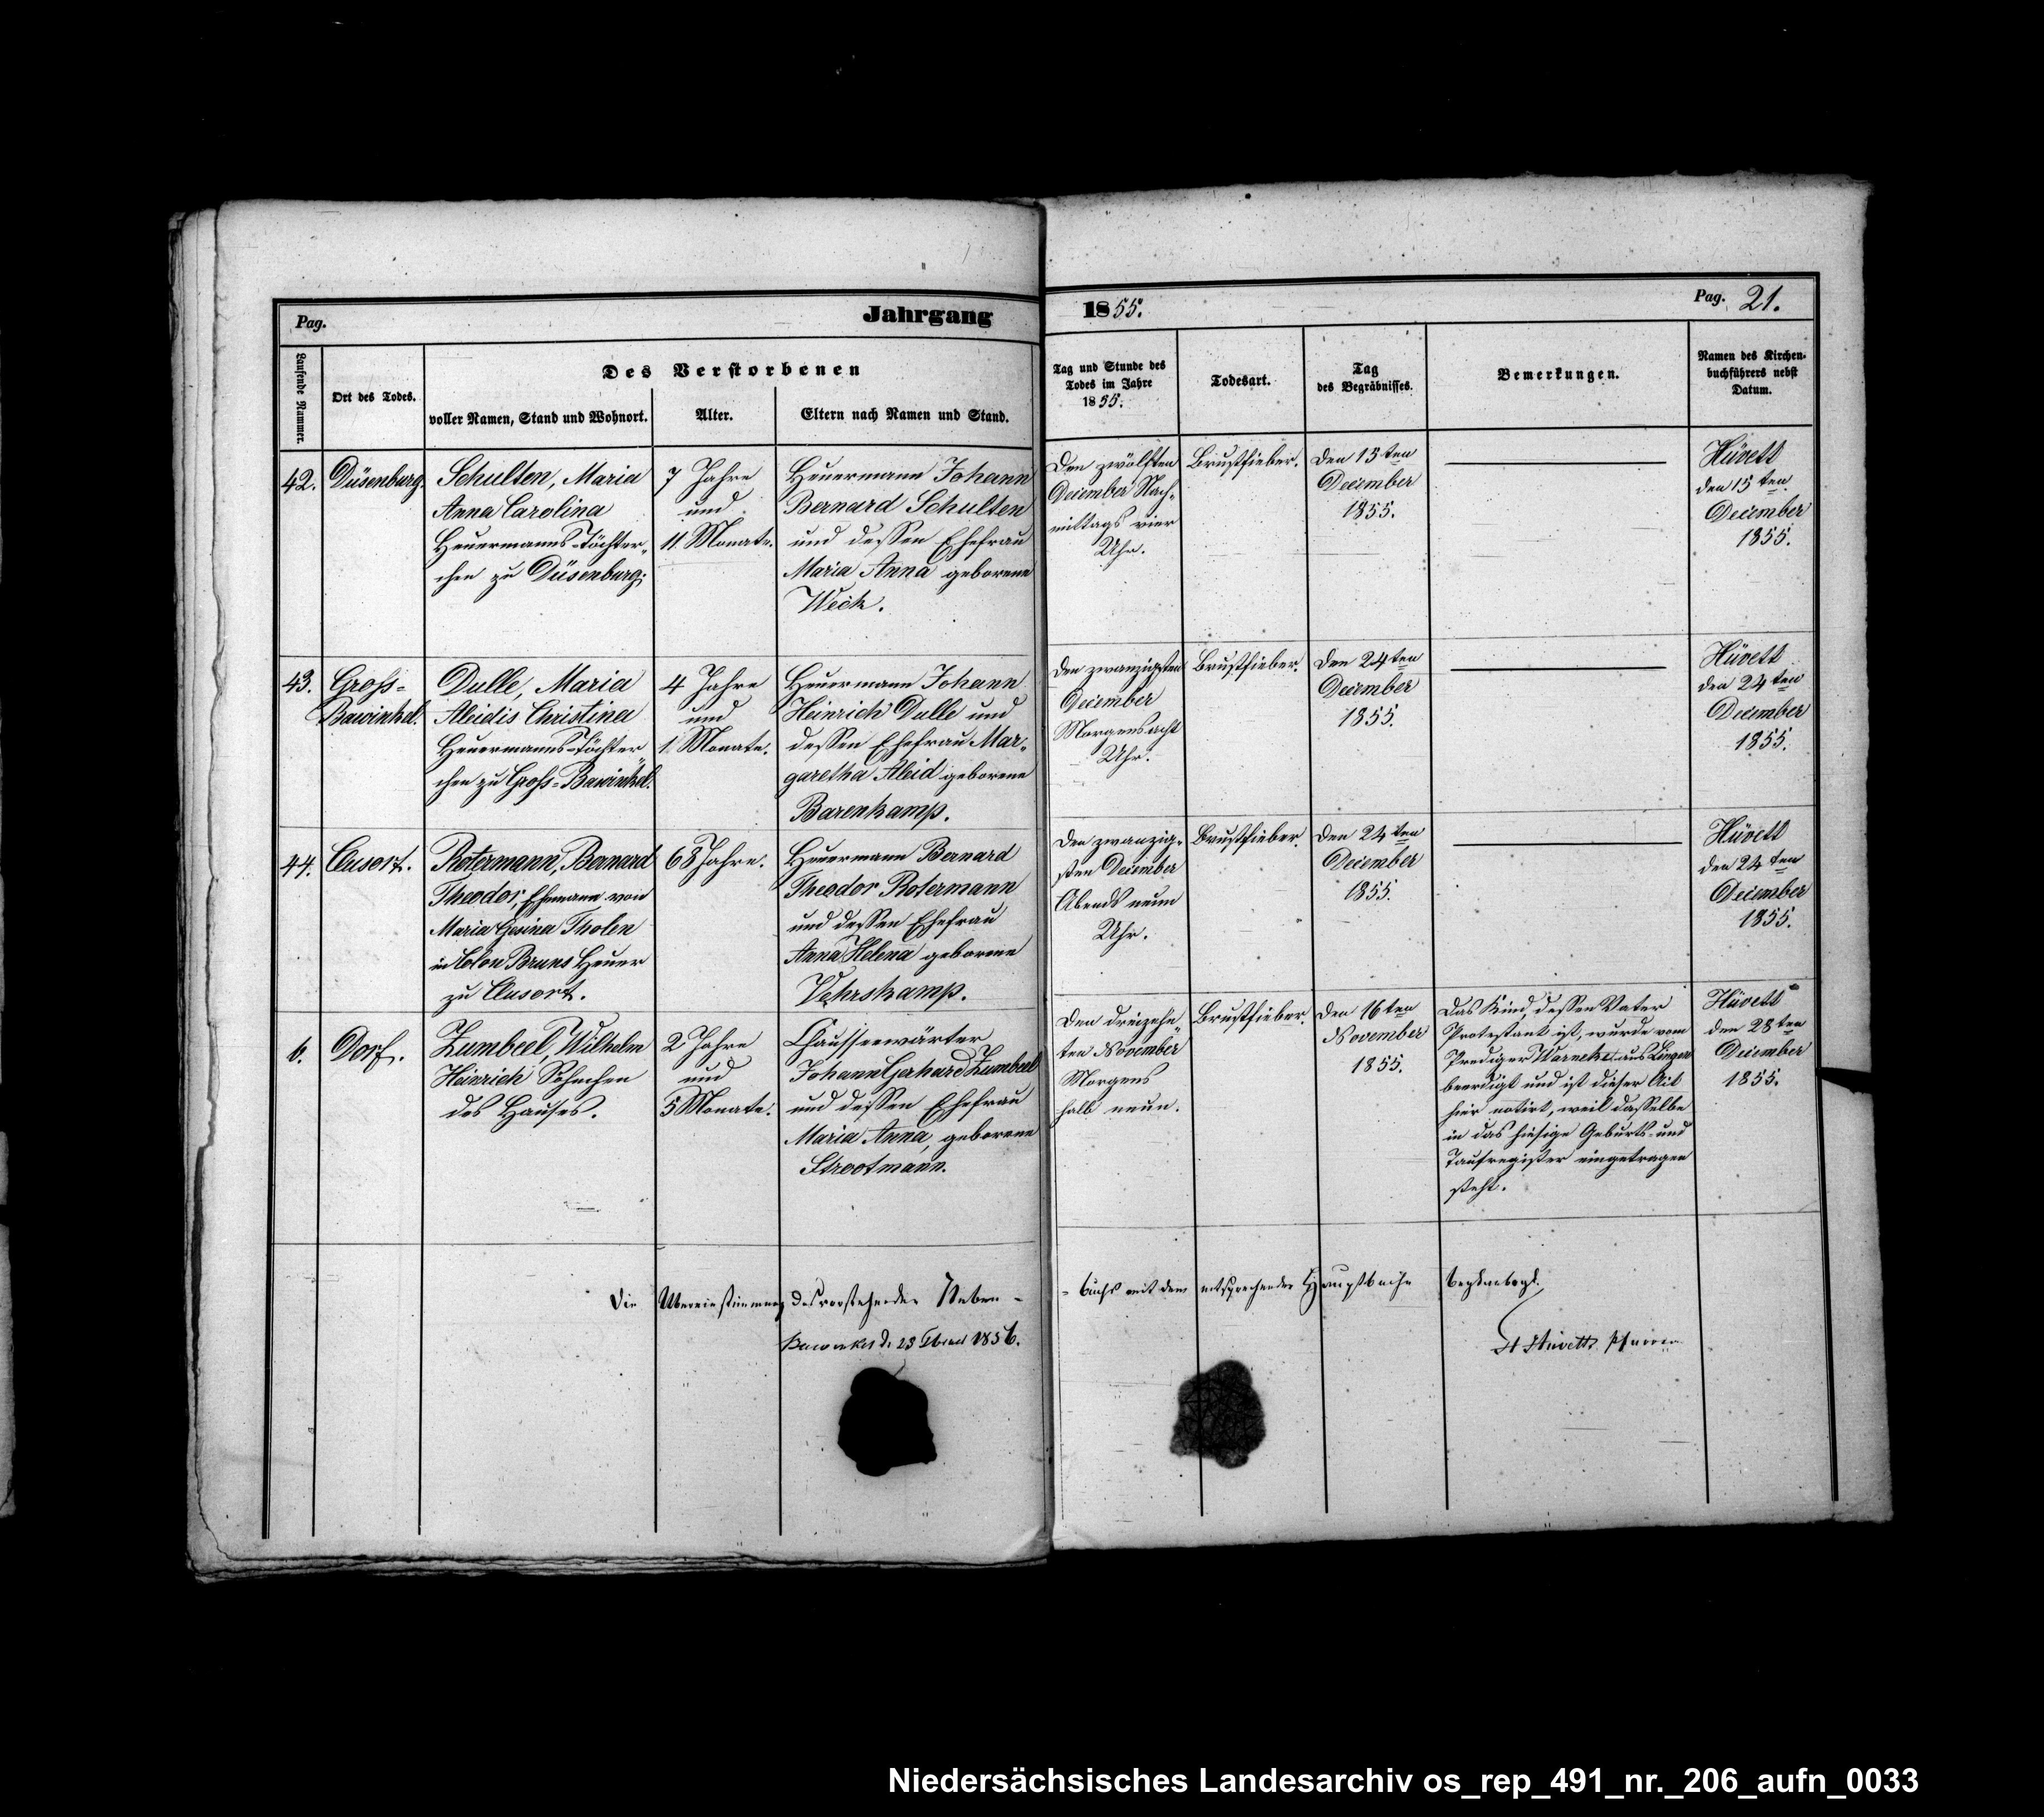 Pag.
Jahrgang
1855.
Pag. 21.
Laufende Nummer.
Ort des Todes.
Des Verstorbenen
voller Namen, Stand und Wohnort.
Alter.
Eltern nach Namen und Stand.
Tag und Stunde des
Todes im Jahre
1855.
Todesart.
Tag
des Begräbnisses.
Bemerkungen.
Namen des Kirchen-
buchführers nebst
Datum.
42.
Düsenburg.
Schulten, Maria
Anna Carolina
Heuermanns-Töchter-
chen zu Düsenburg;
7 Jahre
und
11. Monate.
Heuermann Johann
Bernard Schulten
und dessen Ehefrau
Maria Anna geborene
Weck.
Den zwölften
December Nach-
mittags vier
Uhr.
Brustfieber.
Den 15ten
December
1855.
Hüvett
den 15ten
December
1855.
43.
Gross-
Bawinkel.
Dulle, Maria
Aleidis Christina
Heuermanns-Töchter-
chen zu Gross-Bawinkel.
4 Jahre
und
1. Monate.
Heuermann Johann
Heinrich Dulle und
dessen Ehefrau Mar-
garetha Aleid geborene
Barenkamp.
Den zwanzigsten
December
Morgens acht
Uhr.
Brustfieber.
Den 24ten
December
1855.
Hüvett
den 24ten
December
1855.
44.
Clusort.
Rotermann, Bernard
Theodor, Ehemann von
Maria Gesina Tholen
in Colon Bruns Heuer
zu Clusort.
68 Jahre.
Heuermann Bernard
Theodor Rotermann
und dessen Ehefrau
Anna Helena geborene
Vehrskamp.
Den zwanzig-
sten December
Abends neun
Uhr.
Brustfieber.
Den 24ten
December
1855.
Hüvett
den 24ten
December
1855.
6.
Dorf.
Zumbeel, Wilhelm
Heinrich Söhnchen
des Hauses.
2 Jahre
und
5 Monate.
Chausseewärter
Johann Gerhard Zumbeel
und dessen Ehefrau
Maria Anna, geborene
Strootmann.
Den dreizehn-
ten November
Morgens
halb neun.
Brustfieber.
Den 16ten
November
1855.
Das Kind, dessen Vater
Protestant ist, wurde vom
Prediger Warneke aus Lingen
beerdigt und ist dieser Act
hier notirt, weil dasselbe
in das hiesige Geburts- und
Taufregister eingetragen
steht.
Hüvett
den 28ten
December
1855.
Die Übereinstimmung des vorstehenden Neben-
-buchs mit dem entsprechenden Hauptbuche
1856.
Hüvett Pfarrer
Niedersächsisches Landesarchiv os_rep_491_nr._206_aufn_0033